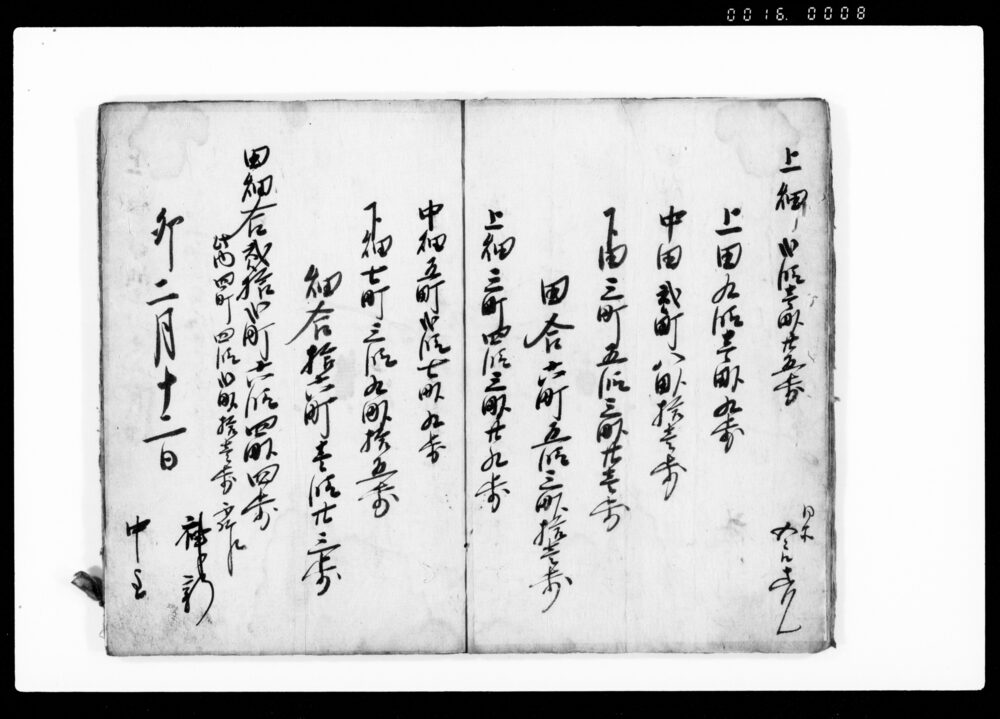 上畑 弐反壱畝廿五歩
上田九反壱畝九歩
中田弐町八畝拾壱歩
下田三町五反三畝廿壱歩
田合六町五反三畝拾壱歩
上畑三町四反三畝廿九歩
中畑五町弐反七畝九歩
下畑七町三反九畝拾五歩
畑合拾六町壱反廿三歩
田畑合弐拾弐町六反四畝四歩
此内四町四反弐畝拾壱歩
卯二月十二日
0016. 0008